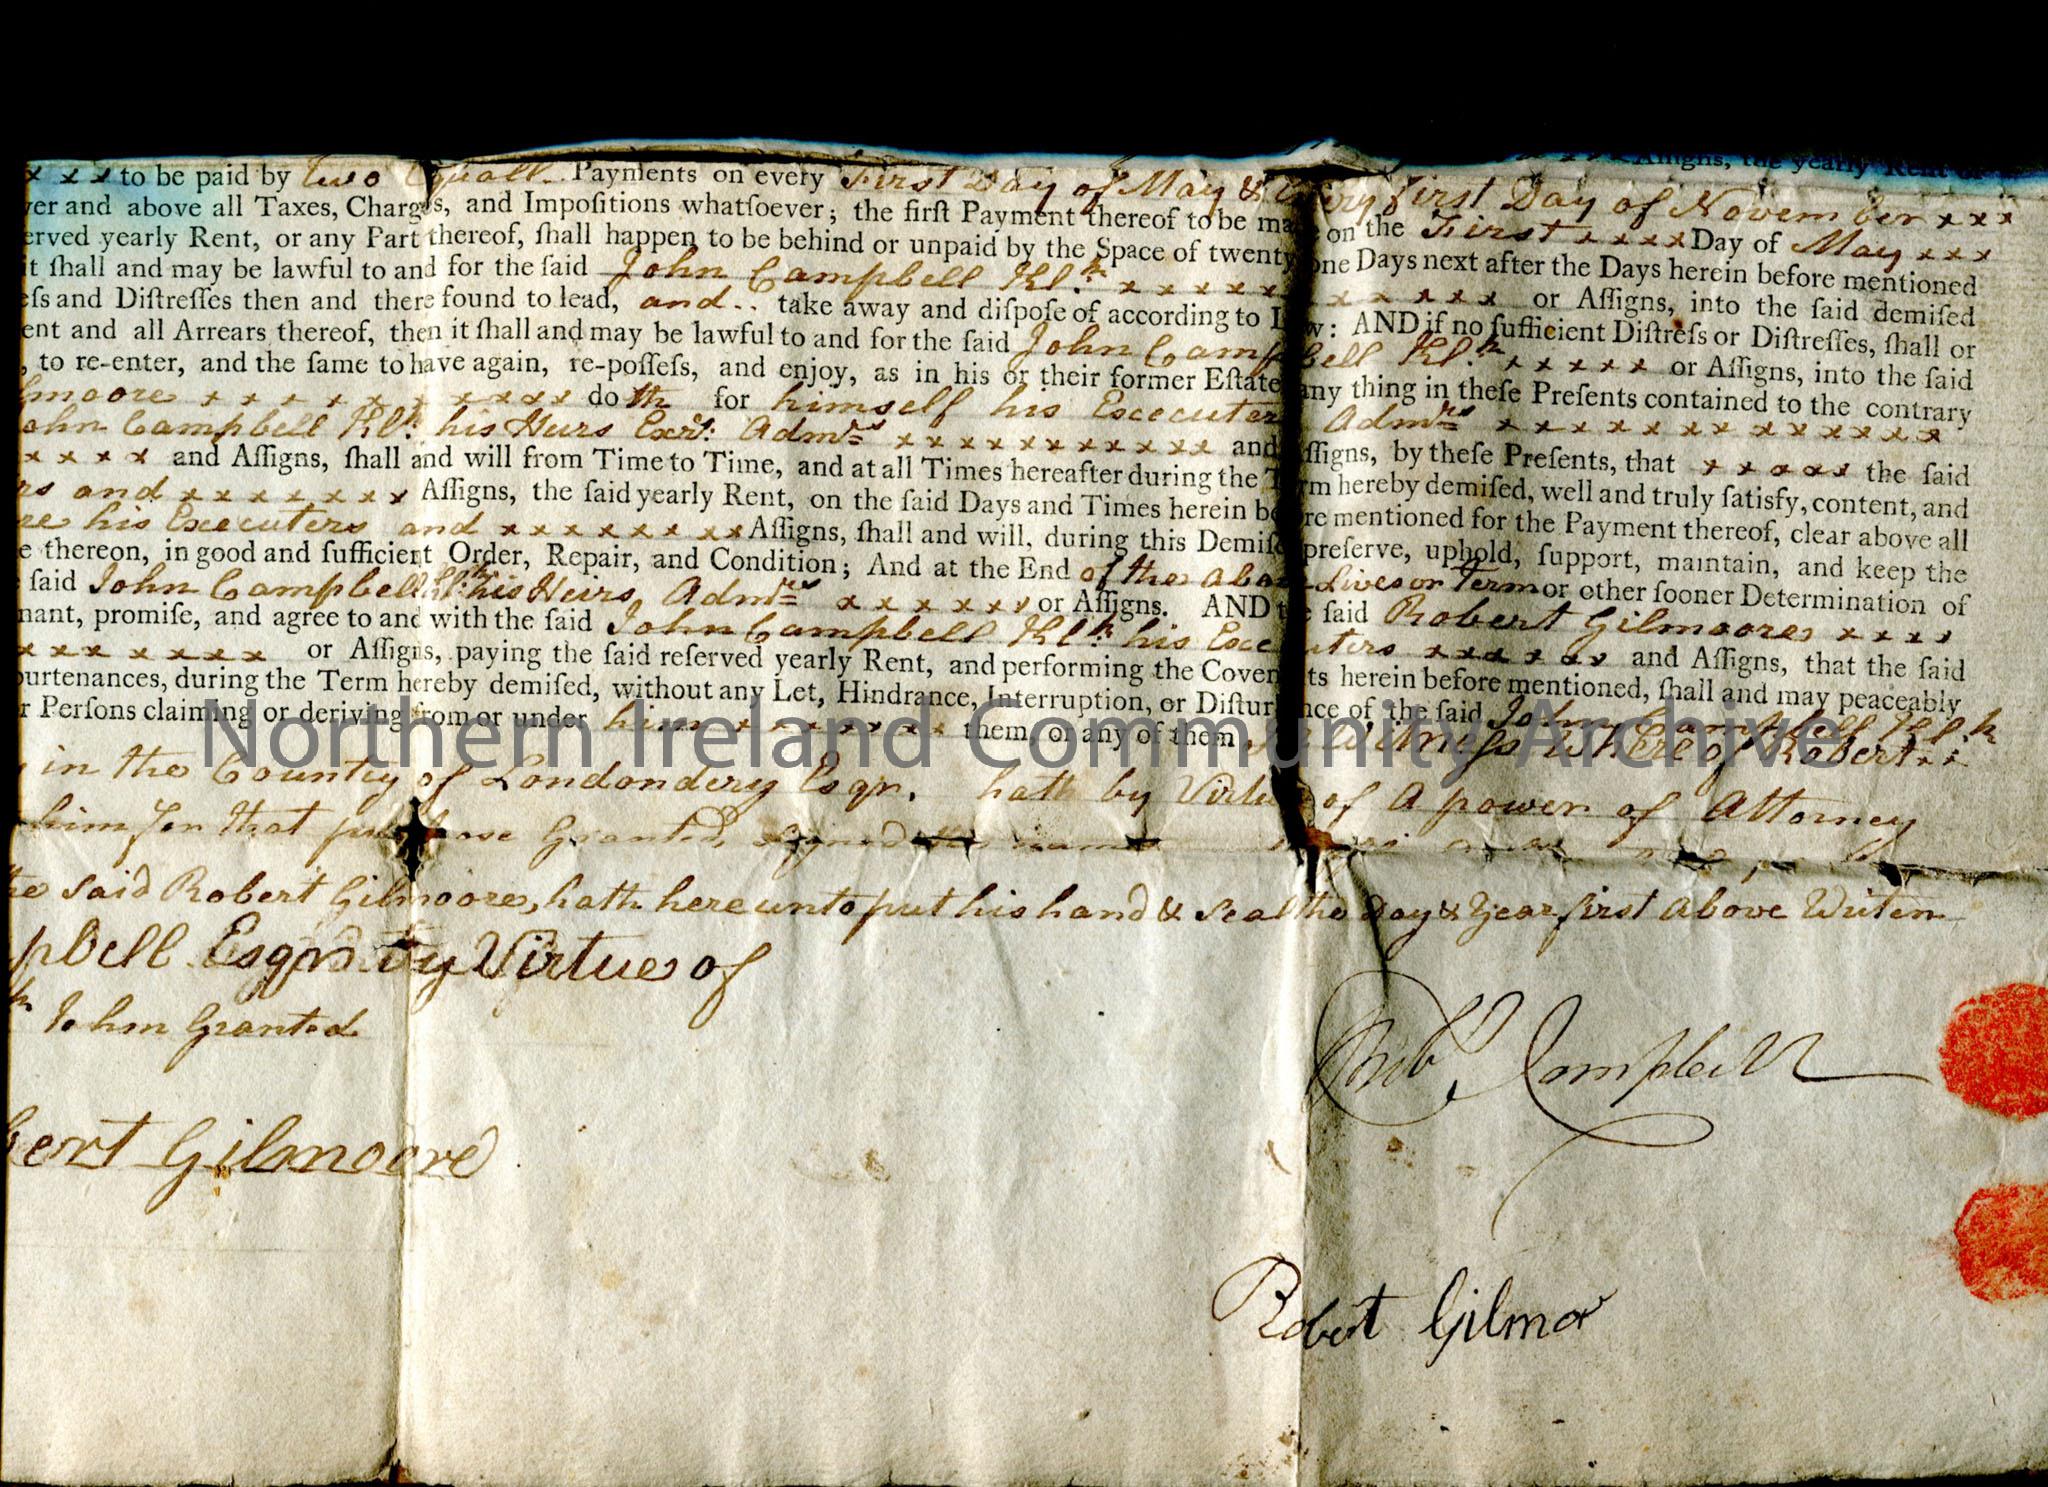 Assigns, the yearly Rent
x x x to be paid by two Equall Payments on every First Day of May & Every First Day of November x x x
ver and above all Taxes, Charges, and Impoſitions whatſoever; the firſt Payment thereof to be made on the First x x x x Day of May x x x
erved yearly Rent, or any Part thereof, ſhall happen to be behind or unpaid by the Space of twenty one Days next after the Days herein before mentioned
it ſhall and may be lawful to and for the ſaid John Campbell Kl.h x x x x x x x x x x x x or Aſſigns, into the ſaid demiſed
eſs and Diſtreſſes then and there found to lead, and .. take away and diſpoſe of according to Law: AND if no ſufficient Diſtreſs or Diſtreſſes, ſhall or
ent and all Arrears thereof, then it ſhall and may be lawful to and for the ſaid John Campbell Kl.h x x x x x or Aſſigns, into the ſaid
, to re-enter, and the ſame to have again, re-poſſeſs, and enjoy, as in his or their former Eſtate any thing in theſe Preſents contained to the contrary
lmoore x x x x x x x x x x x doth for himself his Excecuters Admrs x x x x x x x x x x x x x
ohn Campbell Kl.h his Heirs Exrs: Admrs x x x x x x x x x x x and Aſſigns, by theſe Preſents, that x x x x x the ſaid
x x x x and Aſſigns, ſhall and will from Time to Time, and at all Times hereafter during the Term hereby demiſed, well and truly ſatisfy, content, and
rs and x x x x x x x Aſſigns, the ſaid yearly Rent, on the ſaid Days and Times herein before mentioned for the Payment thereof, clear above all
re his Excecuters and x x x x x x x x Aſſigns, ſhall and will, during this Demiſe preſerve, uphold, ſupport, maintain, and keep the
e thereon, in good and ſufficient Order, Repair, and Condition; And at the End of the above Lives or Term or other ſooner Determination of
ſaid John Campbell Kl.h his Heirs Admrs x x x x x x x or Aſſigns. AND the ſaid Robert Gilmoore x x x x
nant, promiſe, and agree to and with the ſaid John Campbell Kl.h his Excecuters x x x x x x x and Aſſigns, that the ſaid
x x x x x x x or Aſſigns, paying the ſaid reſerved yearly Rent, and performing the Covenants herein before mentioned, ſhall and may peaceably
purtenances, during the Term hereby demiſed, without any Let, Hindrance, Interruption, or Diſturbance of the ſaid John Campbell Kl.h
r Perſons claiming or deriving from or under him x x x x x x x them, or any of them In Witness where of Robert x x
in the County of Londondery Esqr. hath by Virtue of A power of Attorney
him for that purpose Granted, signed
the Said Robert Gilmoore, hath here unto put his hand & Seal the Day & Year first Above Writen
pbell Esqr by Virtue of
h John Granted
bert Gilmoore
Robt Campbell
Robert Gilmor
Northern Ireland Community Archive